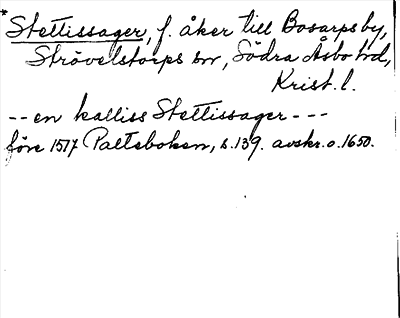 *Stettissager, f. åker till Bosarps by,
Strövelstorps sn, Södra Åsbo hd,
Krist. l.
-- en kalliss Stettissager ---
före 1517 Palteboken, s. 139. avskr. o. 1650.